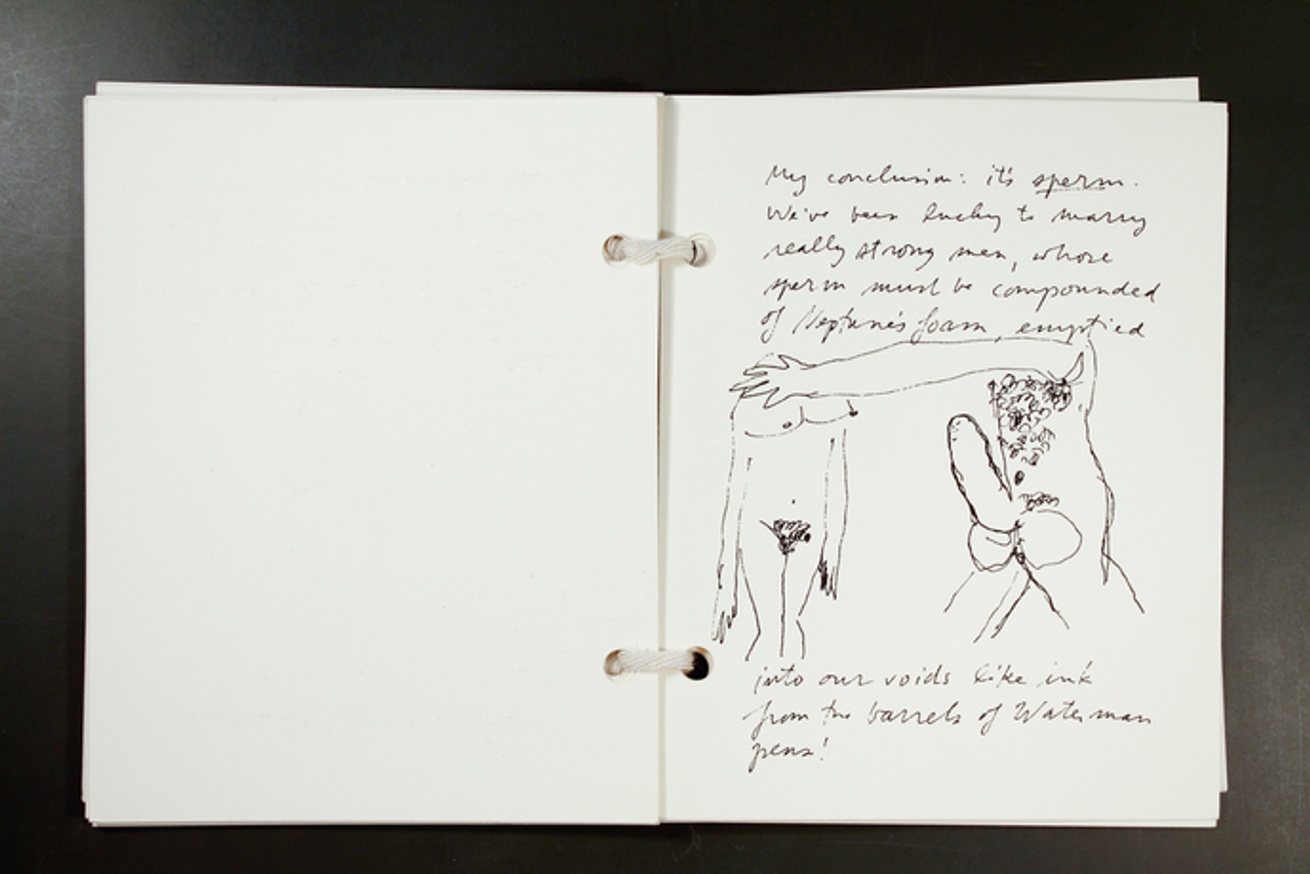 My conclusion: it's sperm.
We've been lucky to marry
really strong men, whose
sperm must be compounded
of Neptune's foam, emptied
into our voids like ink
from the barrels of Waterman
pens!